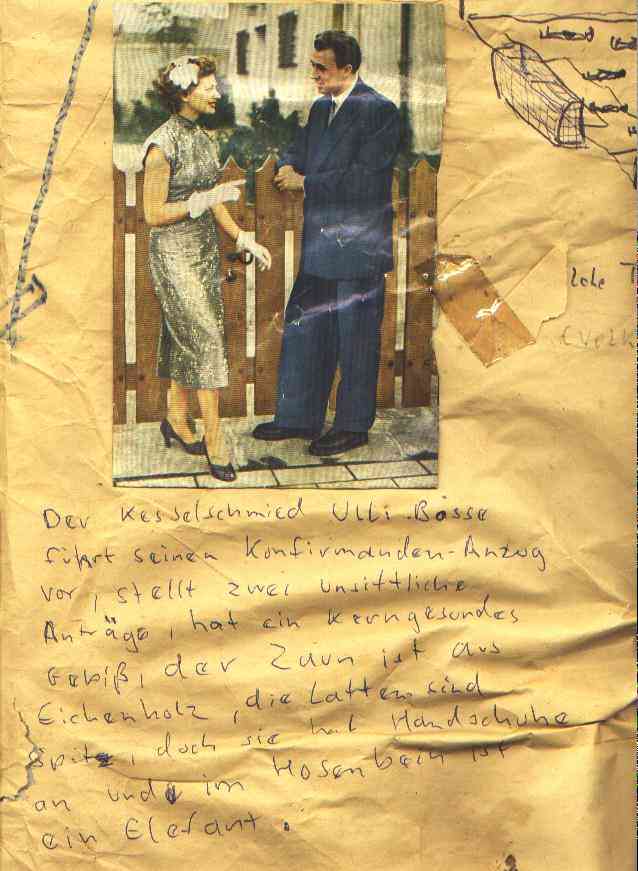 Der Kesselschmied Ulli Bosse
führt seinen Konfirmanden-Anzug
vor, stellt zwei unsittliche
Anträge, hat ein kerngesundes
Gebiß, der Zaun ist aus
Eichenholz, die Latten sind
spitz, doch sie hat Handschuhe
an und im Hosenbein ist
ein Elefant.